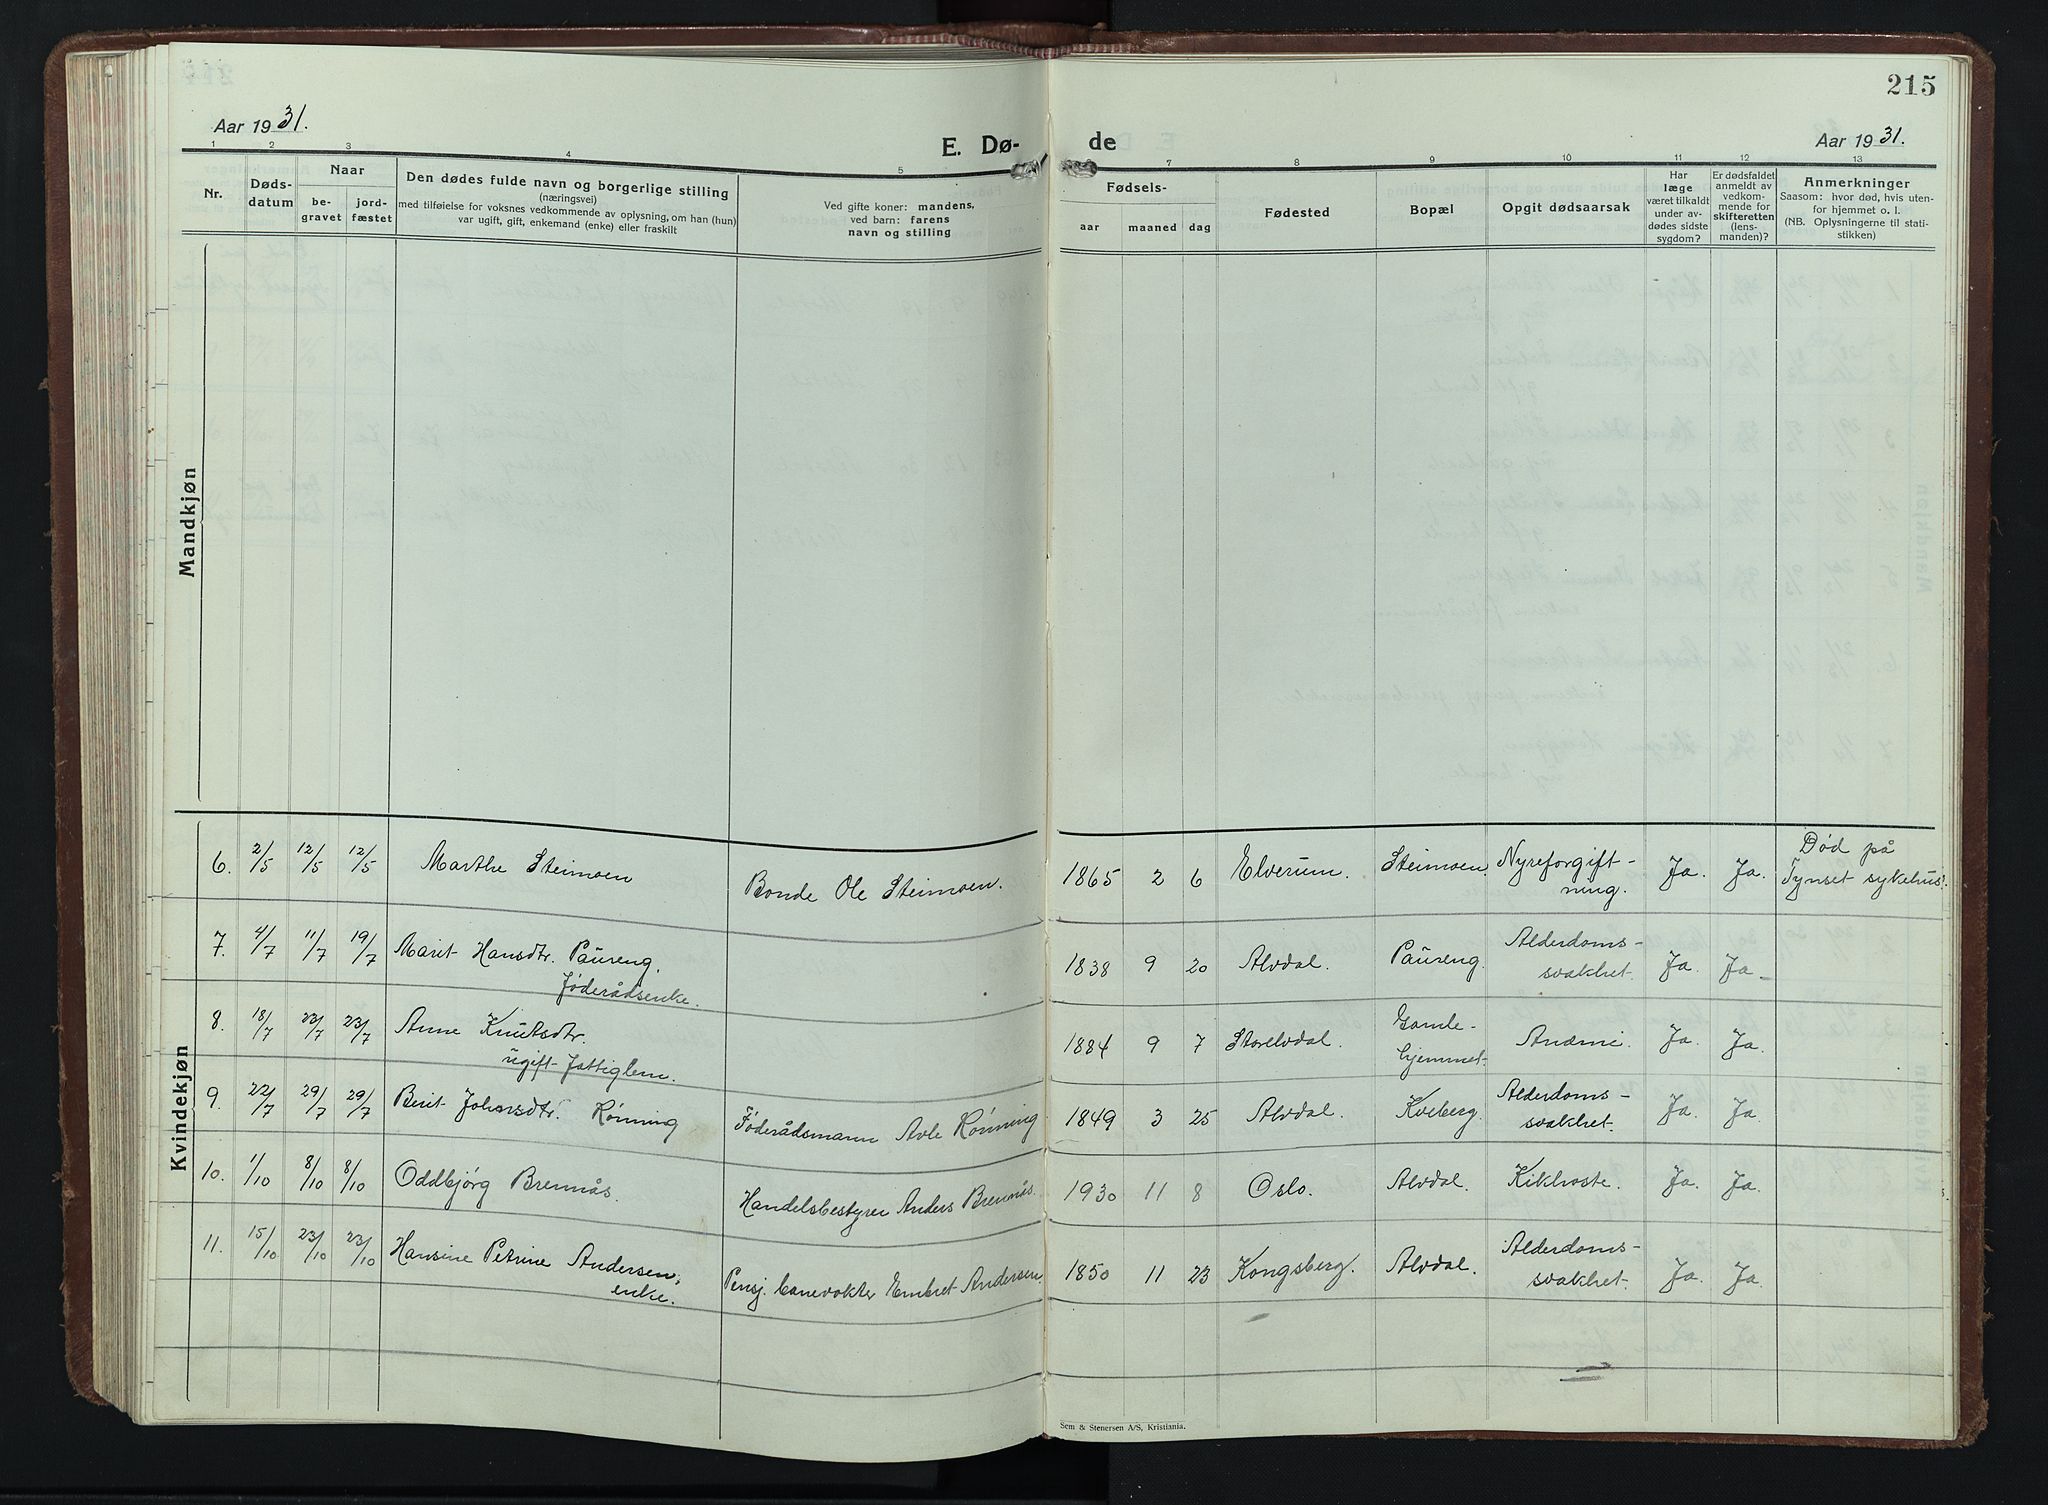 215
Aar 1931.
E. Dø-
de
Aar 1931.
1 2 3 4 5 7 8 9 10 11 12 13
Nr.
Døds-
datum
Naar
be-
gravet
jord-
fæstet
Den dødes fulde navn og borgerlige stilling
(næringsvei)
med tilføielse for voksnes vedkommende av oplysning, om han (hun)
var ugift, gift, enkemand (enke) eller fraskilt
Ved gifte koner: mandens,
ved barn: farens
navn og stilling
Fødsels-
aar maaned dag
Fødested
Bopæl
Opgit dødsaarsak
Har
læge
været tilkaldt
under av-
dødes sidste
sygdom?
Er dødsfaldet
anmeldt av
vedkom-
mende for
skifteretten
(lens-
manden)?
Anmerkninger
Saasom: hvor død, hvis uten-
for hjemmet o. l.
(NB. Oplysningerne til stati-
stikken)
Mandkjøn
Kvindekjøn
6. 2/5 12/5 12/5 Marthe Steimoen Bonde Ole Steimoen. 1865 2 6 Elverum. Steimoen. Nyreforgift-
ning. Ja. Ja. Død på
Tynset sykehus.
7. 4/7 11/7 19/7 Marit Hansdtr. Paureng,
Føderådsenke. 1838 9 20 Alvdal. Paureng. Alderdoms-
svakhet. Ja. Ja.
8. 18/7 23/7 23/7 Anne Knutsdtr.
ugift fattiglem. 1884 9 7 Storelvdal. Gamle-
hjemmet. Anæmi. Ja. Ja.
9. 22/7 29/7 29/7 Berit Johnsdtr. Rønning Føderådsmann Avle Rønning 1849 3 25 Alvdal. Kveberg. Alderdoms-
svakhet. Ja. Ja.
10. 1/10 8/10 8/10 Oddbjørg Brennås. Handelsbestyrer Anders Brennås. 1930 11 8 Oslo. Alvdal. Kikhoste. Ja. Ja.
11. 15/10 23/10 23/10 Hansine Petrine Andersen,
enke. Pensj. banevokter Embret Andersen. 1850 11 23 Kongsberg. Alvdal. Alderdoms-
svakhet. Ja. Ja.
Sem & Stenersen A/S, Kristiania.